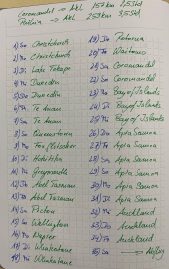 Coromandel → Akl 157km 2,5Std
Rotorua → Akl 253km 3,5Std
1) So Christchurch
2) Mo Christchurch
3) Di Lake Tekapo
4) Mi Dunedin
5) Do Dunedin
6) Te Anau
7) Te Anau
8) So Queenstown
9) Mo Fox Gletscher
10) Di Hokitika
11) Mi Greymouth
12) Do Abel Tasman
13) Abel Tasman
14) Sa Picton
15) So Wellington
16) Mo Napier
17) Di Whakatane
18) Mi Whakatane
19) Do Rotorua
20) Fr Waitomo
21) Sa Coromandel
22) So Coromandel
23) Mo Bay of Islands
24) Di Bay of Islands
25) Mi Bay of Islands
26) Do Apia Samoa
27) Fr Apia Samoa
28) Sa Apia Samoa
29) So Apia Samoa
30) Mo Apia Samoa
31) Di Apia Samoa
32) Mi Auckland
33) Do Auckland
34) Fr Auckland
35) Sa